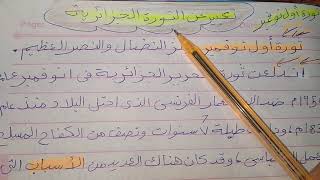 ثورة أول نوفمبر
عرض عن الثورة الجزائرية
ثورة أول نوفمبر رمز النضال والنصر العظيم
اندلعت ثورة التحرير الجزائرية في 1 نوفمبر عام
1954م ضد الاستعمار الفرنسي الذي احتل البلاد منذ عام
طيلة 7 سنوات ونصف من الكفاح المسلح
السياسي، وقد كان هناك العديد من الأسباب التي